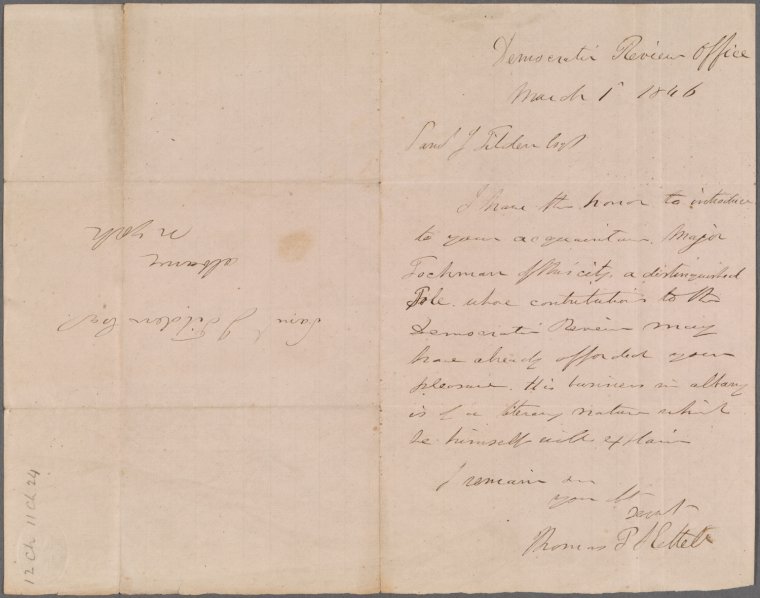 Democratic Review Office
March 1st 1846
Saml J Tilden Esqr
I have the honor to introduce
to your acquaintance Major
Tochman of this city, a distinguished
Pole whose contributions to the
Democratic Review may
have already afforded you
pleasure. His business in albany
is of a literary nature which
he himself will explain
I remain
your
Servt
Thomas P Kettell
Saml J Tilden Esqr
albany
N York
12 Ch 11 Ch 24